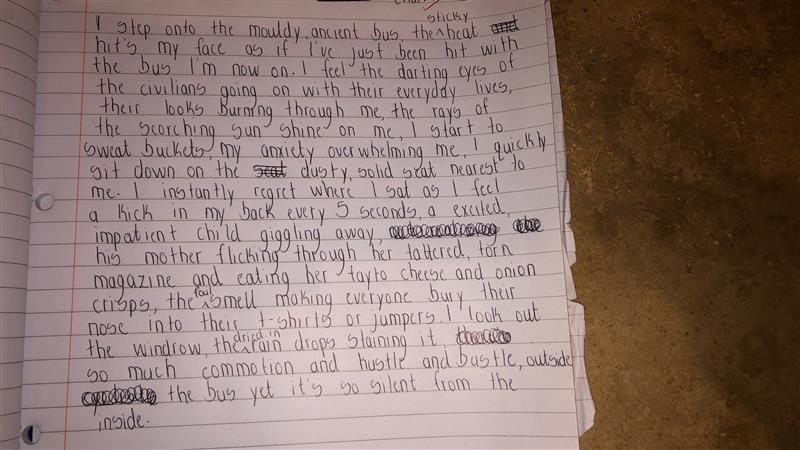 I step onto the mouldy, ancient bus, the sticky heat
hit's, my face as if I've just been hit with
the bus I'm now on. I feel the darting eyes of
the civilians going on with their everyday lives,
their looks burning through me, the rays of
the scorching sun shine on me, I start to
sweat buckets, my anxiety overwhelming me, I quickly
sit down on the seat dusty, solid seat nearest to
me. I instantly regret where I sat as I feel
a kick in my back every 5 seconds, a excited,
impatient child giggling away,
his mother flicking through her tattered, torn
magazine and eating her tayto cheese and onion
crisps, the foul smell making everyone bury their
nose into their t-shirts or jumpers. I look out
the windrow, the dried in rain drops staining it,
so much commotion and hustle and bustle, outside
the bus yet it's so silent from the
inside.